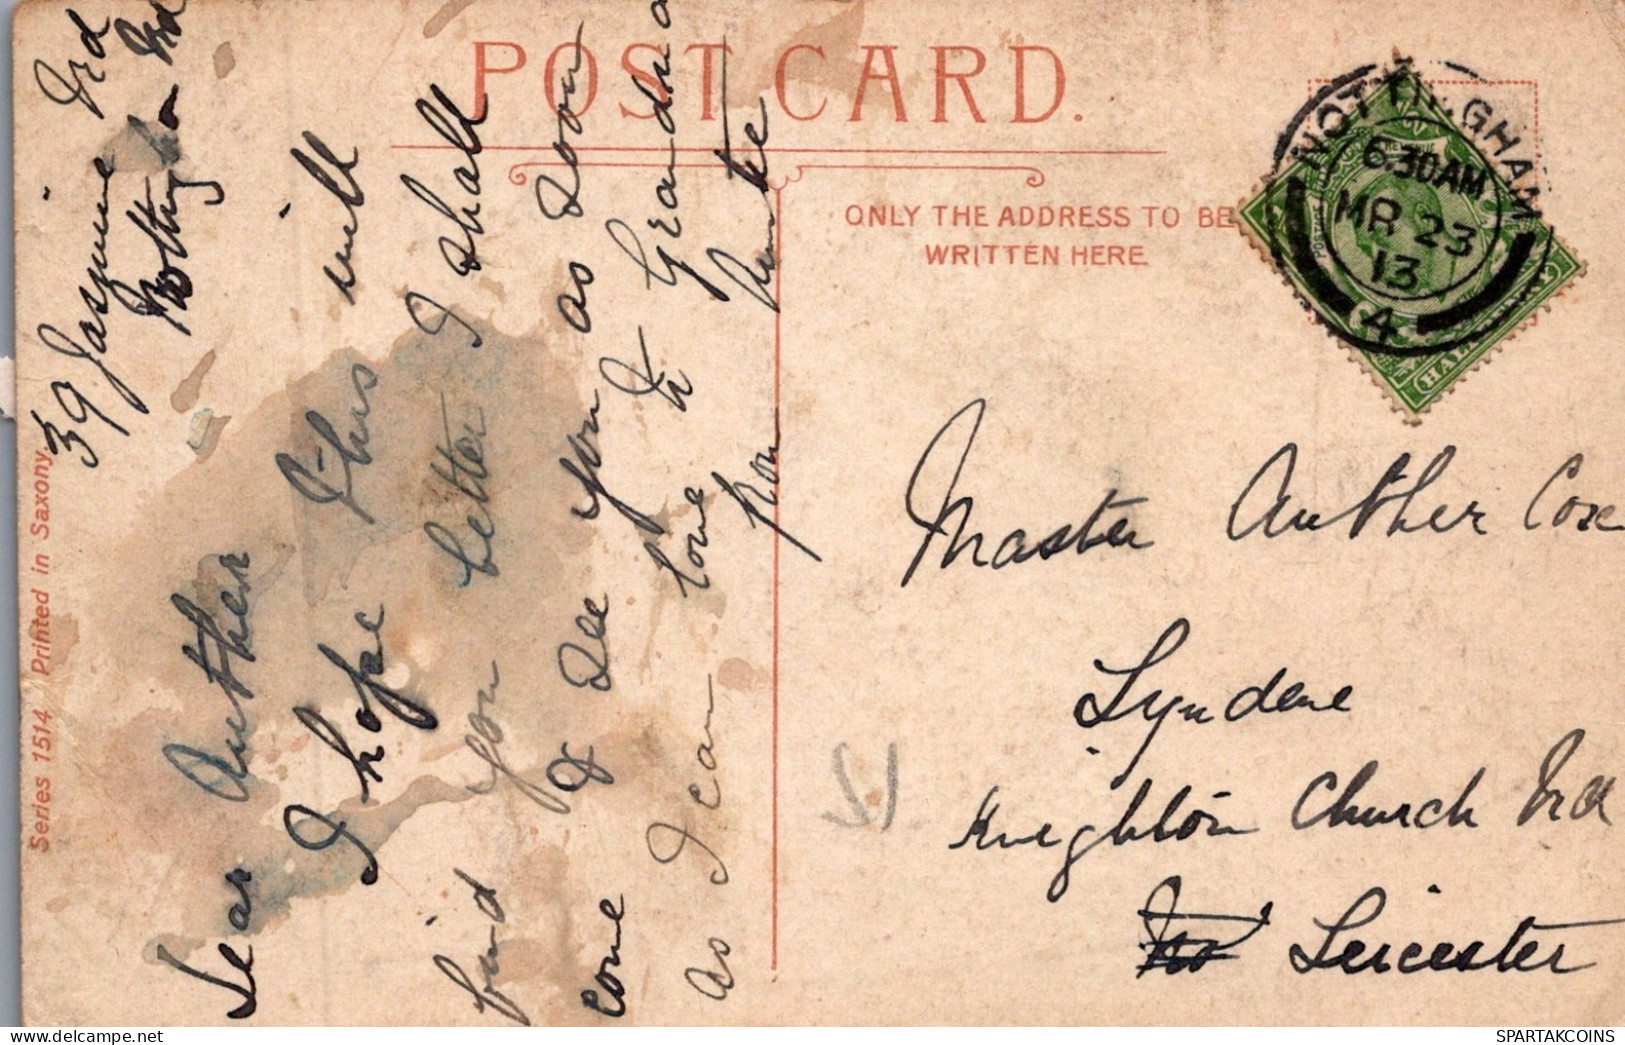 POST CARD.
ONLY THE ADDRESS TO BE
WRITTEN HERE
NOTTINGHAM
6.30AM
MR 23
13
4
HALF
39 Jasmine Rd
Nottingham Rd
Dear Auther
I hope this will
find you better I shall
come & see you as soon
as I can love to Grandma
from
Master Auther Cox
Lyndene
Knighton Church Rd
Leicester
Series 1514 Printed in Saxony.
SPARTAKCOINS